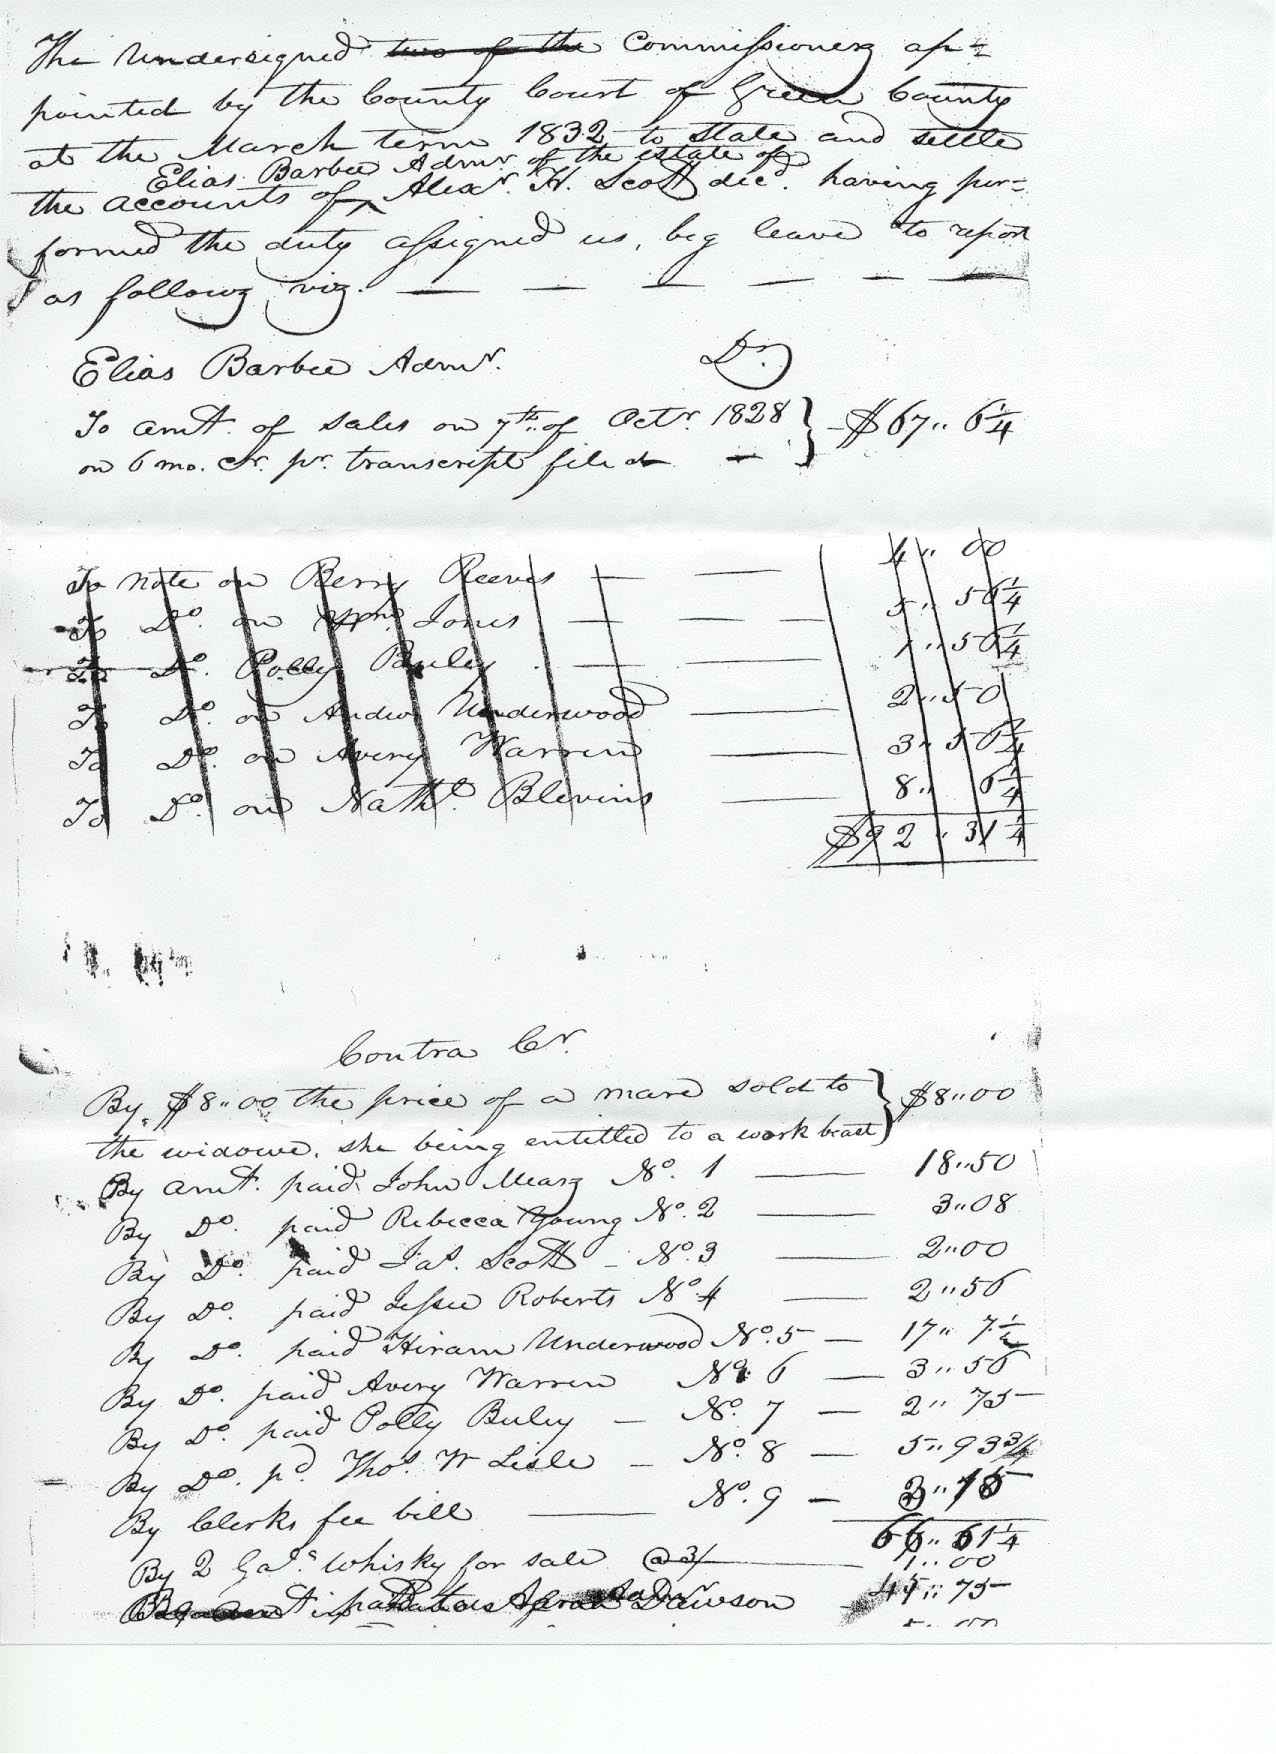 The Undersigned two of the Commissioners ap=
pointed by the County Court of Green County
at the March term 1832 to state and settle
Elias Barbee Admr. of the estate of
the accounts of ^ Alexr. H. Scott decd. having per=
formed the duty assigned us, beg leave to report
as follows viz. — — — — — —
Elias Barbee Admr. Dr.
To amt. of sales on 7th. of Octr. 1828 } - $67,, 6 1/4
on 6 mo. Cr. pr. transcript filed —
To note on Berry Reeves — — 4,, 00
To Do. on Wm. Jones — — — 5,, 56 1/4
To Do. Polly Buley . — — 1,, 56 1/4
To Do. on Andw Underwood — 2,, 50
To Do. on Avery Warren — 3,, 56 2/4
To Do. on Nathl. Blevins — 8,, 6 1/4
$92,, 31 1/4
Contra Cr.
By $8,,00 the price of a mare sold to } $8,,00
the widowe, she being entitled to a work beast
By amt. paid John Mears No. 1 — 18,,50
By Do. paid Rebecca Young No. 2 — 3,,08
By Do. paid Jas. Scott - No. 3 — 2,,00
By Do. paid Jessee Roberts No. 4 — 2,,56
By Do. paid Hiram Underwood No. 5 — 17,, 7 1/2
By Do. paid Avery Warren No. 6 — 3,, 56
By Do. paid Polly Buley — No. 7 — 2,, 75
By Do. pd. Thos. W Lisle — No. 8 — 5,, 93 3/4
By Clerks fee bill — No. 9 — 3,, 15
66,, 61 1/4
By 2 Gals. Whisky for sale @ 3/ — 1,, 00
Dawson 45,, 75